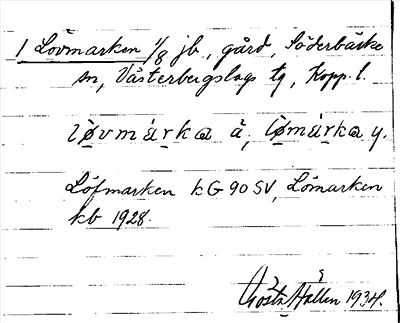 1 Lövmarken 1/8 jb., gård, Söderbärke
sn, Västerbergslags tg, Kopp. l.
lǿvmárka ä, lǿmárka y.
Löfmarken kG 90 SV, Lömarken
kb 1928.
Gösta Hallen 1934.